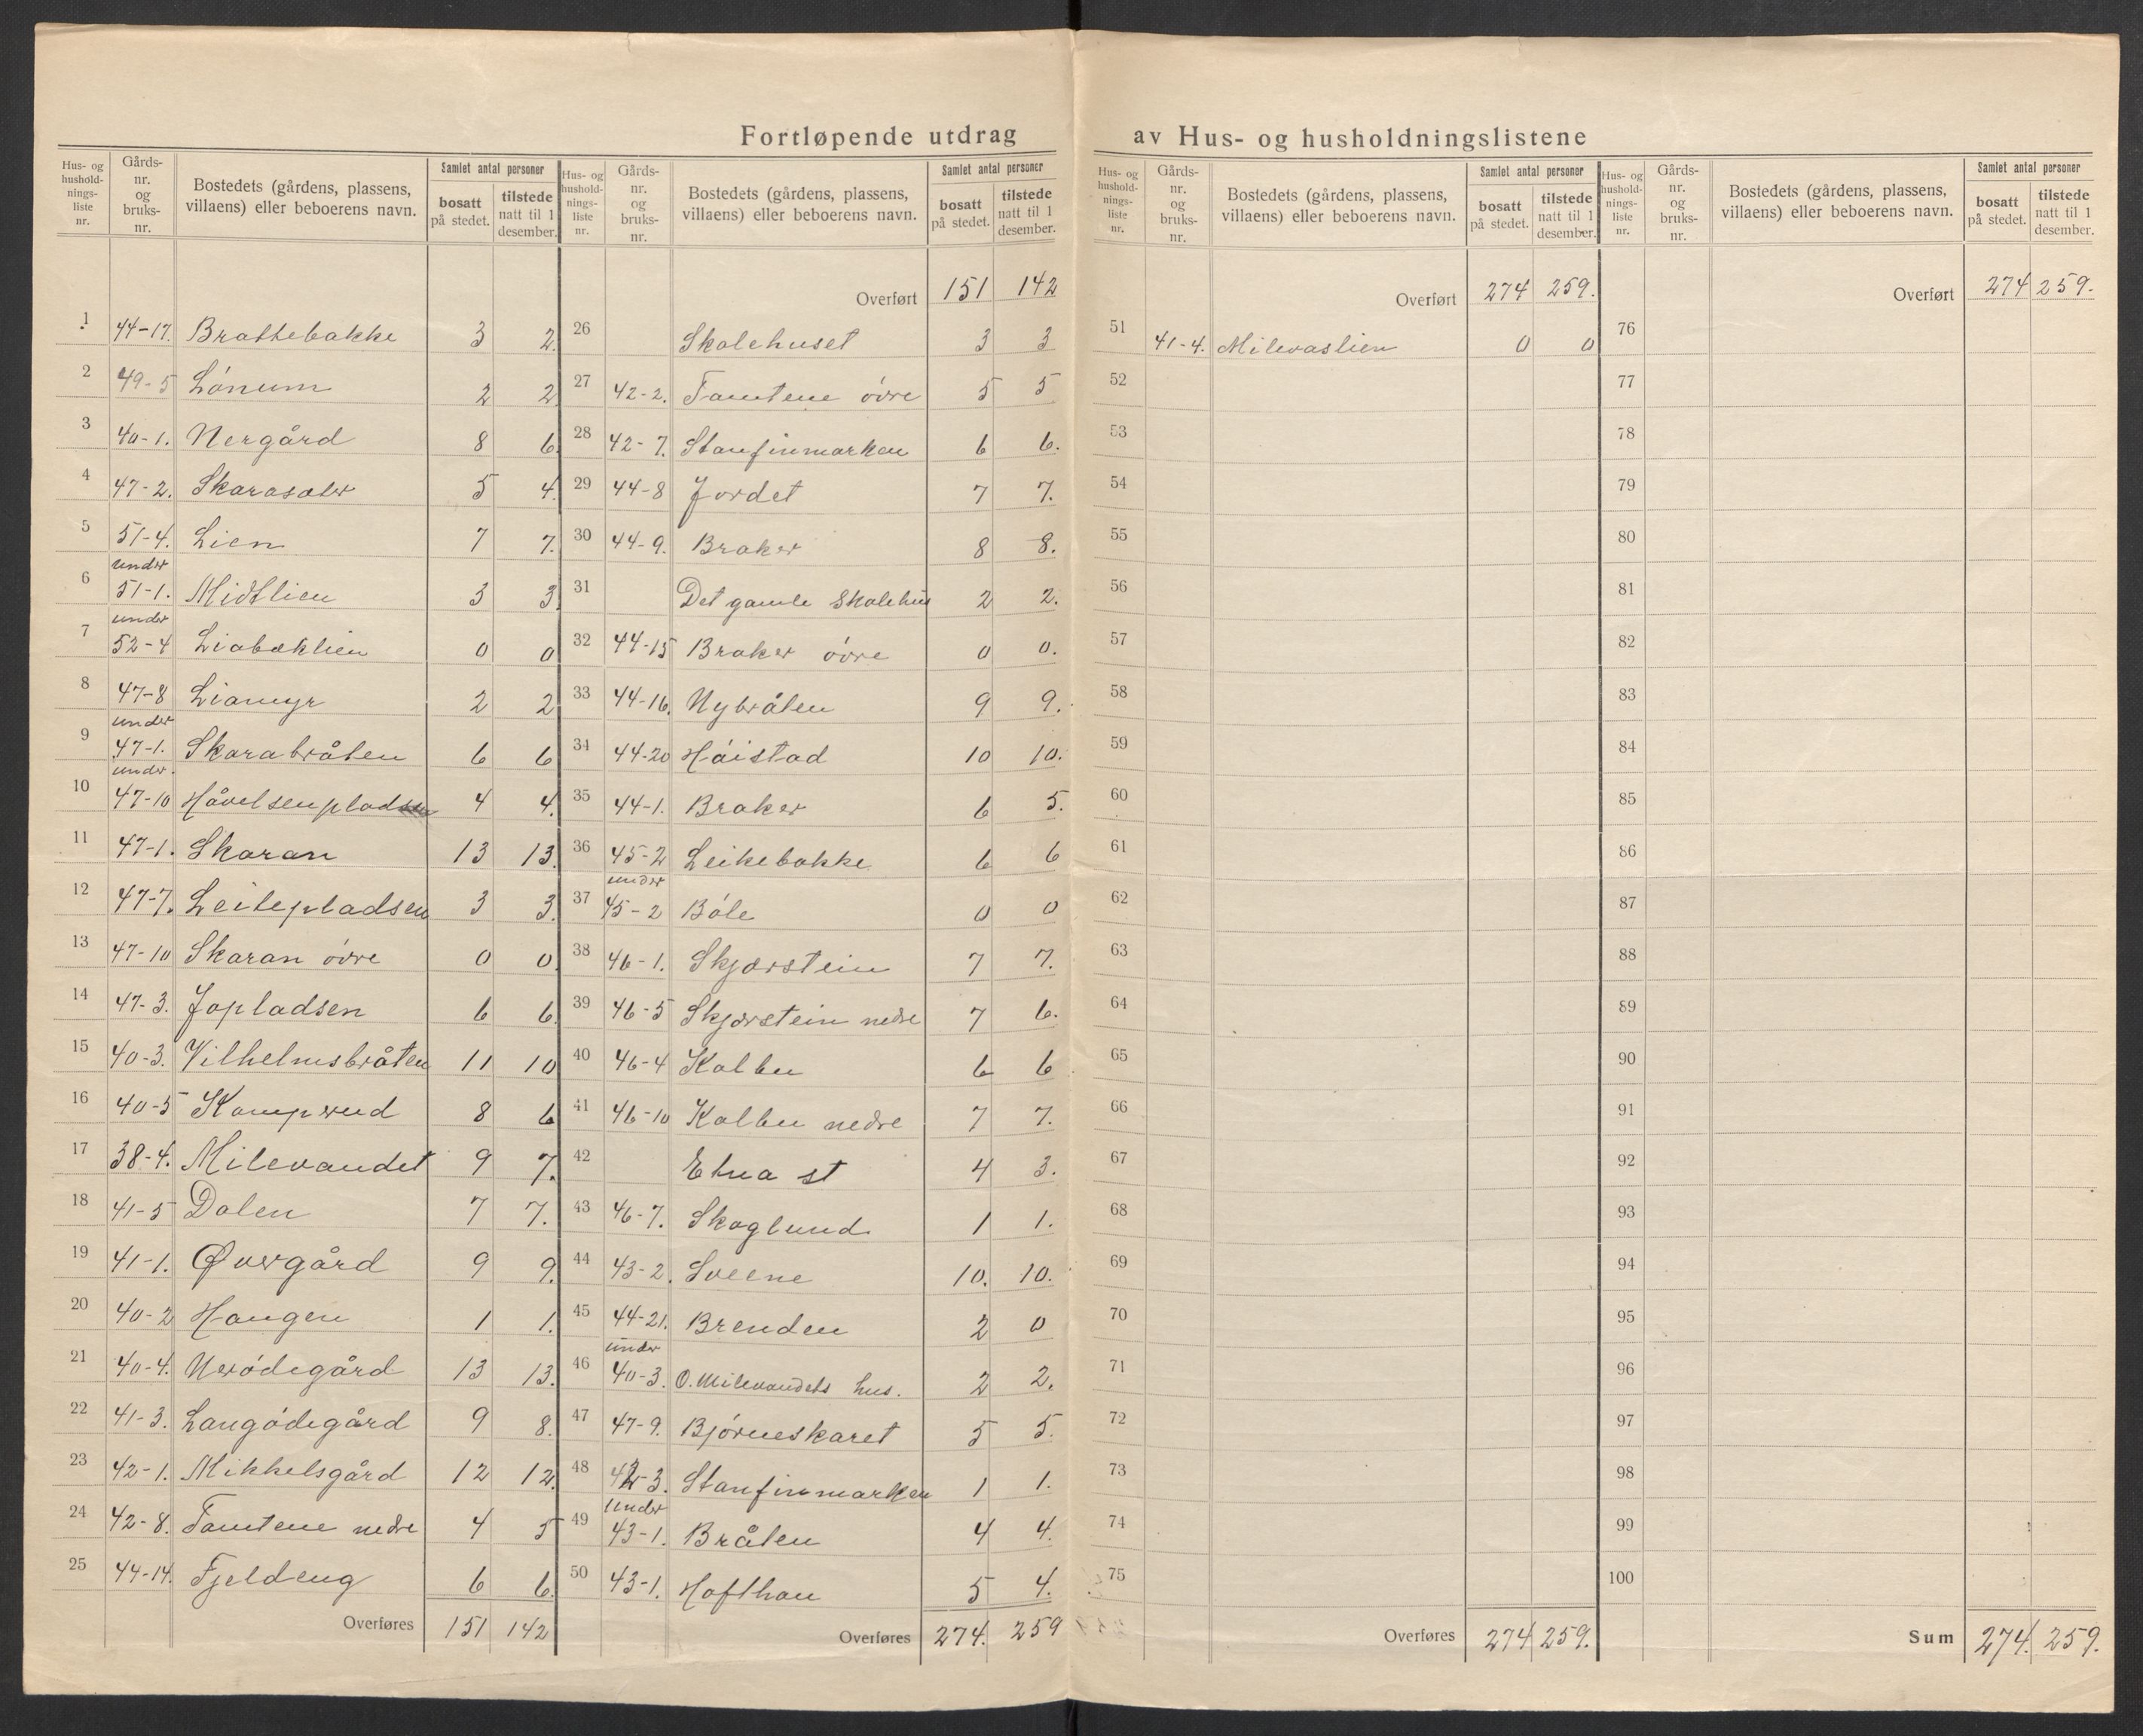 Fortløpende utdrag av Hus- og husholdningslistene
Hus- og husholdningsliste nr. Gårds-nr. og bruks-nr. Bostedets (gårdens, plassens, villaens) eller beboerens navn. Samlet antal personer bosatt på stedet. tilstede natt til 1 desember.
1 44-17. Brattebakke 3 2
2 49-5 Lónum 2 2
3 40-1. Nergård 8 6.
4 47-2. Skarasæter 5 4.
5 51-4. Lien 7 7.
6 under 51-1. Midtlien 3 3.
7 under 52-4 Liabæklien 0 0
8 47-8 Liamyr 2 2
9 under 47-1. Skarabråten 6 6
10 under 47-10 Håvelsenpladsen 4 4.
11 47-1. Skaran 13 13.
12 47-7. Leitepladsen 3 3.
13 47-10 Skaran óvre 0 0
14 47-3. Jopladsen 6 6
15 40-3. Vilhelmsbråten 11 10
16 40-5 Kamperud 8 6
17 38-4. Milevandet 9 7.
18 41-5 Dalen 7 7.
19 41-1. Øvergård 9 9.
20 40-2 Haugen 1 1.
21 40-4. Neródegård 13 13.
22 41-3. Langódegård 9 8.
23 42-1. Mikkelsgård 12 12.
24 42-8. Tomtene nedre 4 5
25 44-14. Fjeldeng 6 6.
Overføres 151 142
Hus- og husholdningsliste nr. Gårds-nr. og bruks-nr. Bostedets (gårdens, plassens, villaens) eller beboerens navn. Samlet antal personer bosatt på stedet. tilstede natt til 1 desember.
Overført 151 142
26 Skolehuset 3 3
27 42-2. Tomtene óvre 5 5
28 42-7. Stanfinmarken 6 6.
29 44-8 Jordet 7 7.
30 44-9. Braker 8 8.
31 Det gamle Skolehus 2 2.
32 44-15 Braker óvre 0 0.
33 44-16. Nybråten 9 9.
34 44-20 Hóistad 10 10.
35 44-1. Braker 6 5.
36 45-2 Leikebakke 6 6
37 under 45-2 Bóle 0 0
38 46-1. Skjærstein 7 7.
39 46-5 Skjærstein nedre 7 6.
40 46-4 Kolbu 6 6
41 46-10 Kolbu nedre 7 7.
42 Etna st 4 3.
43 46-7. Skoglund 1 1.
44 43-2. Sveene 10. 10.
45 44-21. Brenden 2 0
46 under 40-3. O. Milevandets hus. 2 2.
47 47-9. Bjórneskaret 5 5.
48 43-3. Stanfinmarken 1 1.
49 Under 43-1. Bråten 4 4.
50 43-1. Hofthon 5 4.
Overføres 274. 259
Hus- og husholdningsliste nr. Gårds-nr. og bruks-nr. Bostedets (gårdens, plassens, villaens) eller beboerens navn. Samlet antal personer bosatt på stedet. tilstede natt til 1 desember.
Overført 274 259.
51 41-4. Milevaslien 0 0
52
53
54
55
56
57
58
59
60
61
62
63
64
65
66
67
68
69
70
71
72
73
74
75
Overføres 274 259.
Hus- og husholdningsliste nr. Gårds-nr. og bruks-nr. Bostedets (gårdens, plassens, villaens) eller beboerens navn. Samlet antal personer bosatt på stedet. tilstede natt til 1 desember.
Overført 274 259.
76
77
78
79
80
81
82
83
84
85
86
87
88
89
90
91
92
93
94
95
96
97
98
99
100
Sum 274. 259.